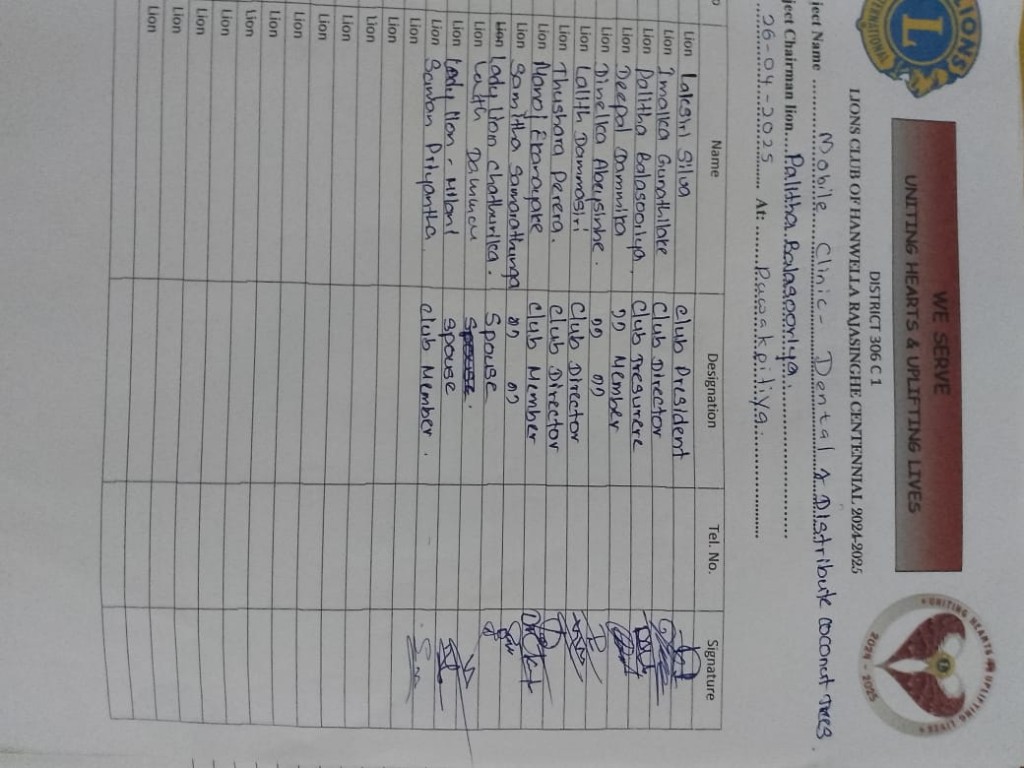 WE SERVE
UNITING HEARTS & UPLIFTING LIVES
LIONS
L
UNITING HEARTS & UPLIFTING LIVES
2024 - 2025
DISTRICT 306 C 1
LIONS CLUB OF HANWELLA RAJASINGHE CENTENNIAL 2024-2025
ject Name ........ Mobile Clinic - Dental & Distribute coconut trees.
ject Chairman lion.... Palitha Balasooriya
26-04-2025 At:
Name Designation Tel. No. Signature
Lion Laksiri Silva Club President
Lion Imalka Gunathilake Club Director
Lion Palitha Balasooriya. Club Tresurere
Lion Deepal Dammika 〃 Member
Lion Dinelka Abeysinhe. 〃 〃
Lion Lalith Dammasiri Club Director
Lion Thushara Perera. Club Director
Lion Manoj Ekanayake Club Member
Lion Samitha Samarathunga 〃 〃
Lion Lady Lion chathurika. Spouse
Lion Lalith
Lion Lady Lion - Milani Spouse
Lion Saman Priyantha Club Member.
Lion
Lion
Lion
Lion
Lion
Lion
Lion
Lion
Lion
Lion
Lion